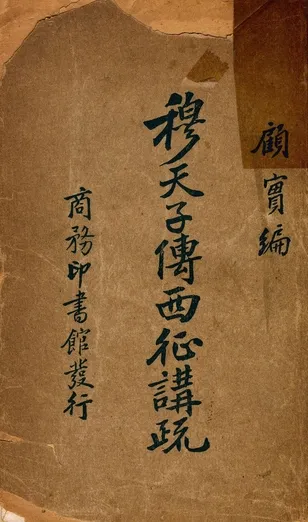 顧實編
穆天子傳西征講疏
商務印書館發行